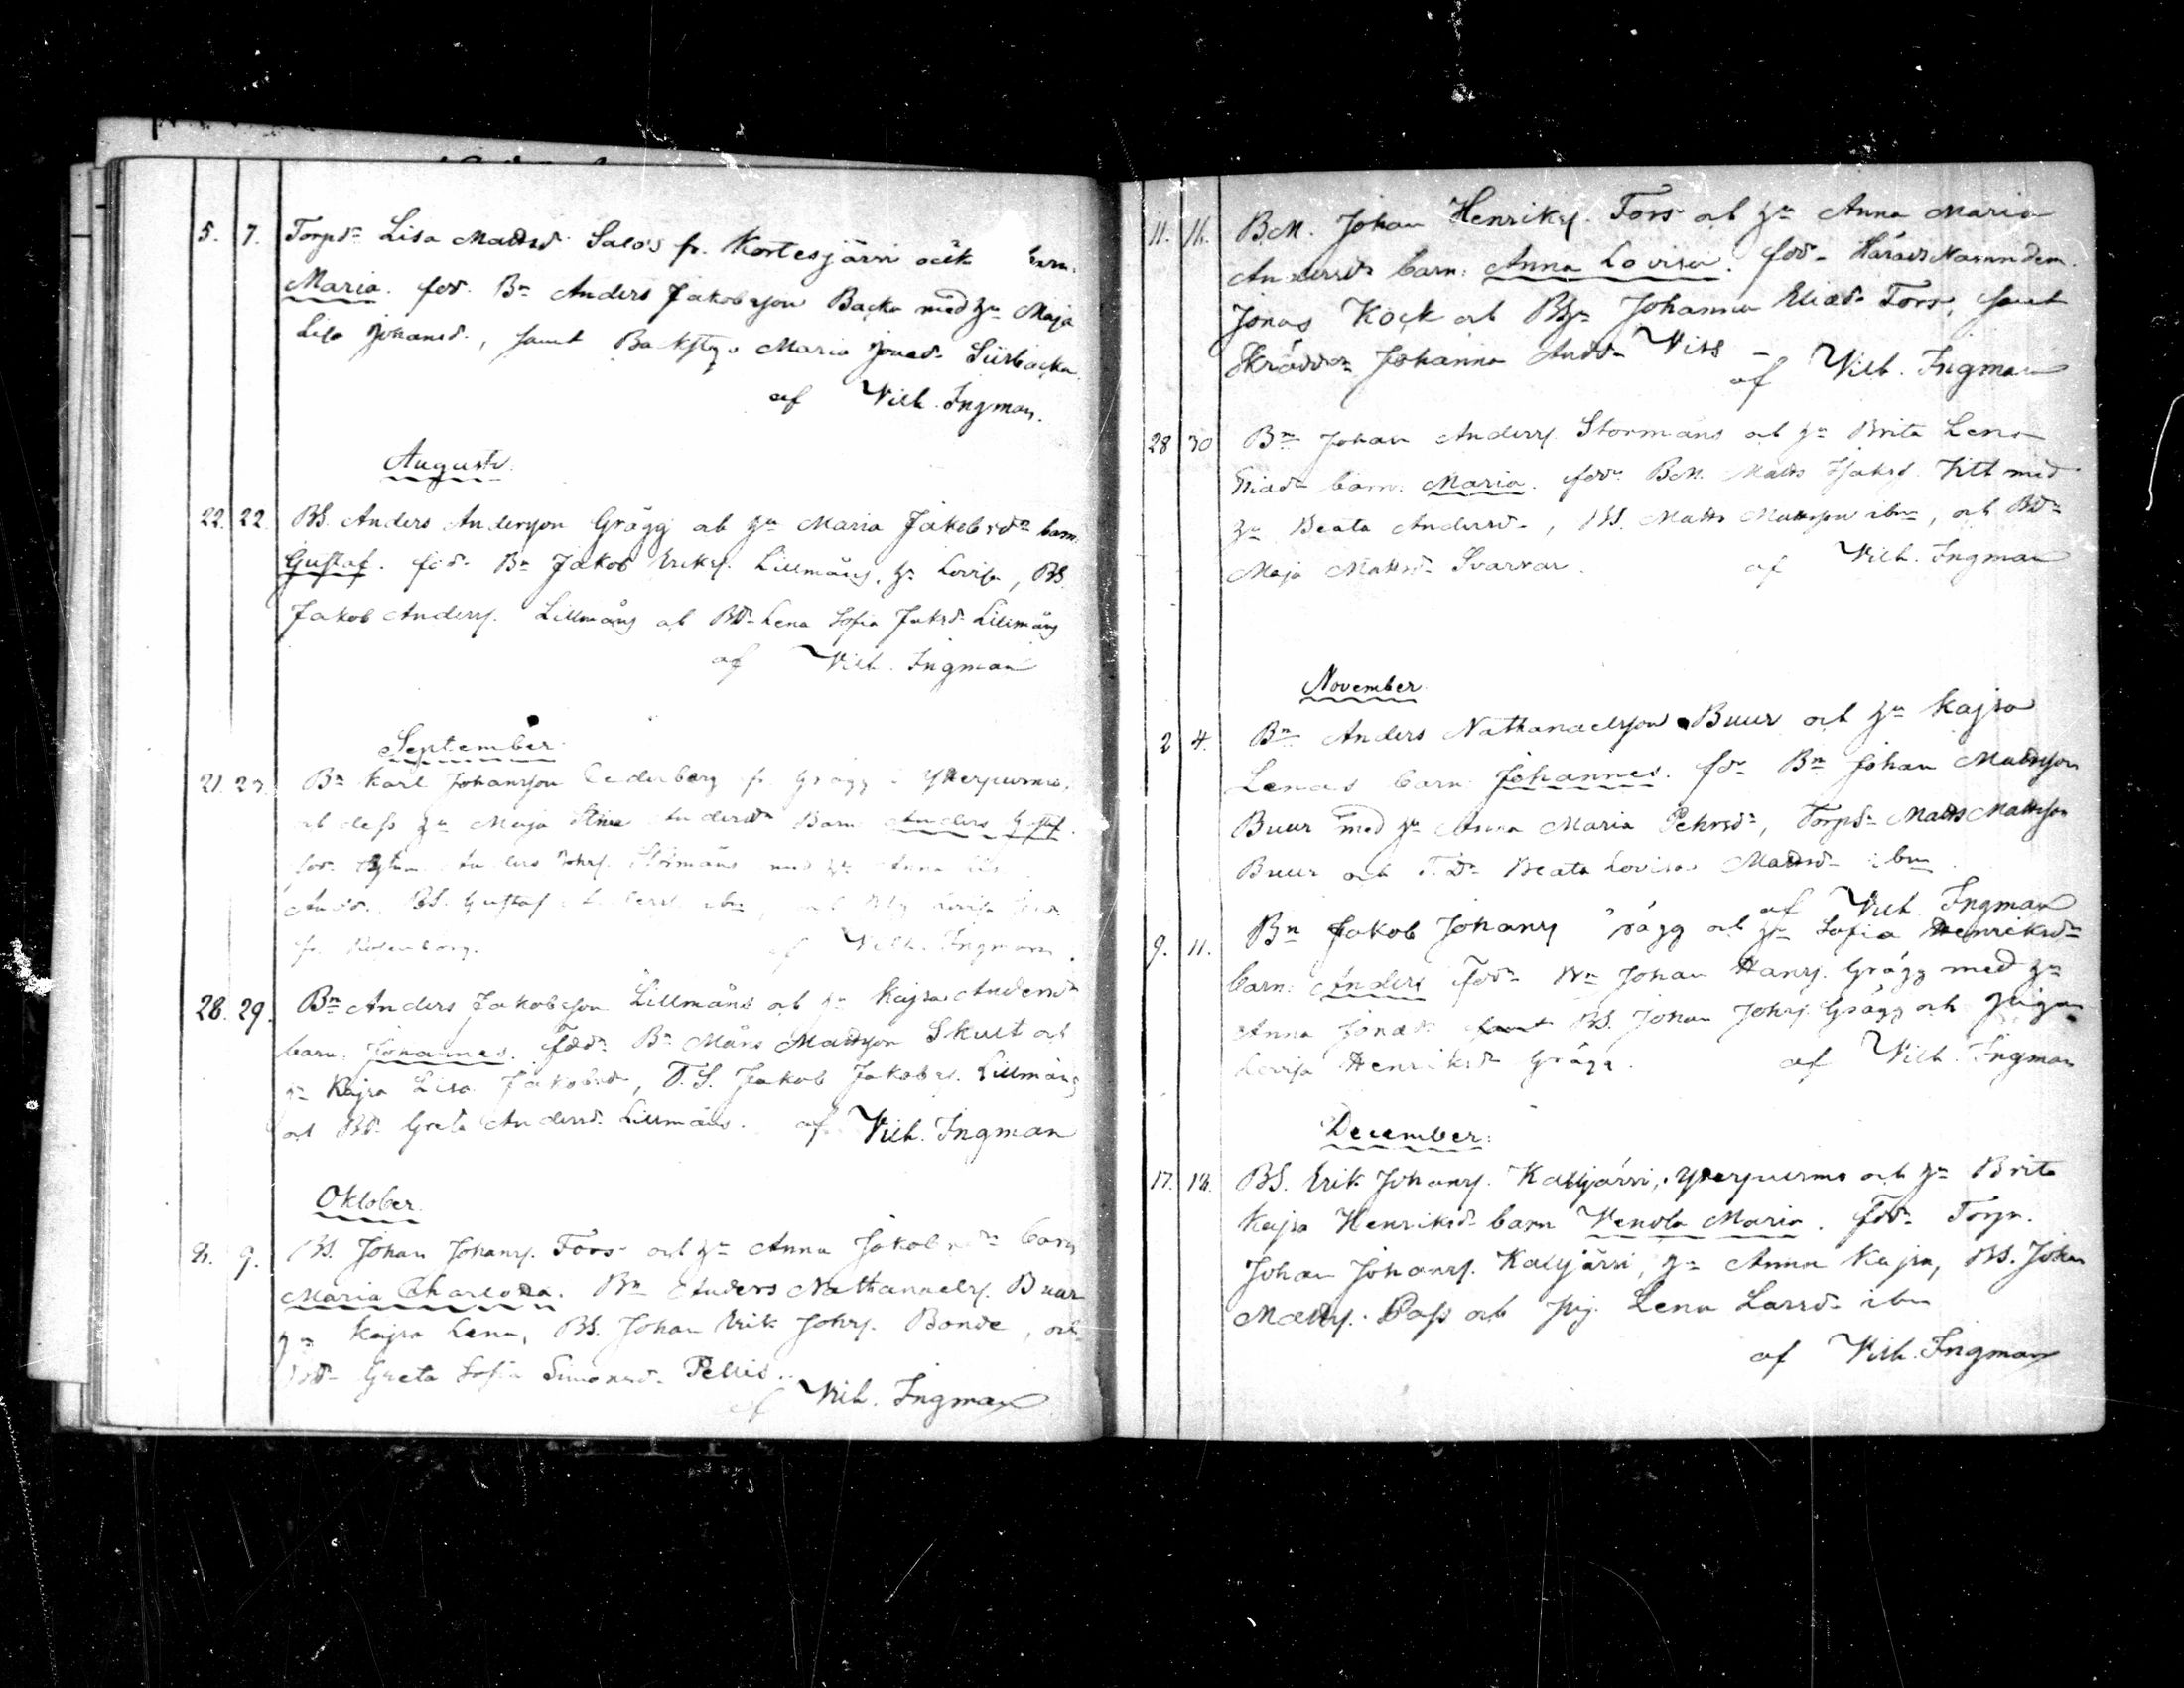 5. 7. Torpd. Lisa Mattsd. Salos fr. Kortesjärvi barn:
Maria. fdd. Bn Anders Jakobsson Backa med hu Maja
Lisa Johansd., samt Maria Jonasd. Siirbacka.
af Vilh. Ingman.
Augusti.
22. 22. BS. Anders Andersson Grägg och hu Maria Jakobsdr barn:
Gustaf. fdd. Bn Jakob Eriks. Lillmåns, hu Lovisa, BS.
Jakob Anders. Lillmåns och BD. Lena Sofia Jaksd. Lillmåns
af Vilh. Ingman
September.
21. 23. Bn Karl Johansson Cederberg fr. Grägg i Ytterpurmo,
och dess hu Maja Stina Andersdr Barn Anders Gustaf.
Anders Johns. med hu Anna
BS. Gustaf
fr. Rosenborg. af Vilh. Ingman.
28. 29. Bn Anders Jakobsson Lillmåns och hu Kajsa Andersdr
barn. Johannes. fdd. Bn Måns Mattsson Skult och
hu Kajsa Lisa Jakobsd., T.S. Jakob Jakobs. Lillmåns
och BD. Greta Andersd. Lillmåns. af Vilh. Ingman
Oktober.
9. BS. Johan Johans. Fors och hu Anna Jakobsdr barn
Maria Charlotta. Bn Anders Nathanaels. Buur
hu Kajsa Lena, BS. Johan Erik Johns. Bonde, och
Greta Sofia Simonsd. Pellis.
af Vilh. Ingman
11. 16. BM. Johan Henriks. Fors och hu Anna Maria
Andersdr barn: Anna Lovisa. fdd. Häradsnämndem.
Jonas Kock och Johanna Eliasd. Fors, samt
Johanna Andd. Viss
af Vilh. Ingman
28 30 Bn Johan Anders. Stormåns och hu Brita Lena
Eliasd. barn. Maria. fdd. BM. Matts Jakss. Titt med
hu Beata Andersd., BS. Matts Mattsson ibm, och BD.
Maja Mattsd. Svarvar. af Vilh. Ingman
November.
2 4. Bn Anders Nathanaelsson Buur och hu Kajsa
Lenas barn Johannes. fdd. Bn Johan Mattsson
Buur med hu Anna Maria Pehrsd., Torpd. Matts Mattsson
Buur och T.D. Beata Lovisa Mattsd. ibm
af Vilh. Ingman
9. 11. Bn Jakob Johans. Grägg och hu Sofia Henriksdr
barn: Anders fdd. Bn Johan Hans. Grägg med hu
Anna Jonasd. samt BS. Johan Johns. Grägg och pigan
Lovisa Henriksd. Grägg. af Vilh. Ingman
December.
17. 18. BS. Erik Johans. Kalljärvi, Ytterpurmo och hu Brita
Kajsa Henriksd. barn Vendla Maria. fdd. Torp.
Johan Johans. Kalljärvi, hu Anna Kajsa, BS. Johan
Matts. Pass och pig. Lena Larsd. ibm
af Vilh. Ingman